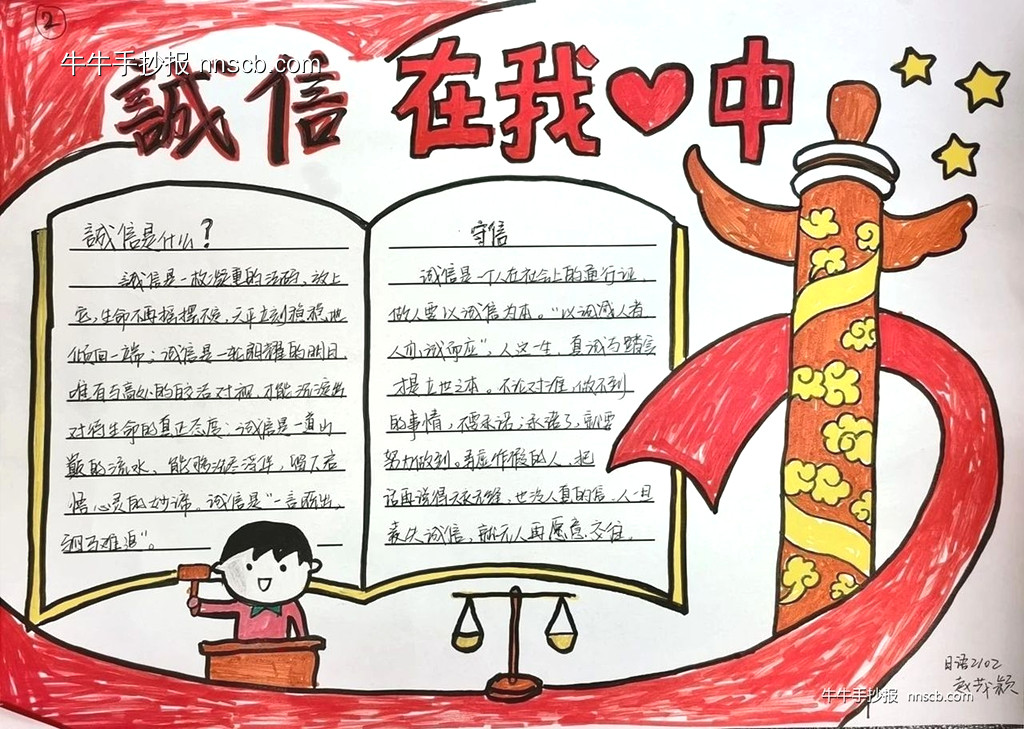 2
牛牛手抄报 nnscb.com
誠信 在我❤中
誠信是什么?
誠信是一枚凝重的法码、放上
它，生命不再摇摆不定，天平立刻稳稳地
倾向一端；诚信是一轮朗耀的明月
唯有与高处的皎洁对视，才能沉淀出
对待生命的真正态度；诚信是一道山
巅的流水，能够洗尽浮华，留下启
悟心灵的妙谛。诚信是“一言既出，
驷马难追”。
守信
诚信是一个人在社会上的通行证，
做人要以诚信为本。“以诚感人者，
人亦诚而应”，人这一生，真诚与踏实
才是立世之本。不论对谁，做不到
的事情，不要承诺；承诺了，就要
努力做到。弄虚作假的人，把
话再说得天衣无缝，也没人真的信，人一旦
丧失诚信，就无人再愿意交往。
日语2102
牛牛手抄报 nnscb.com